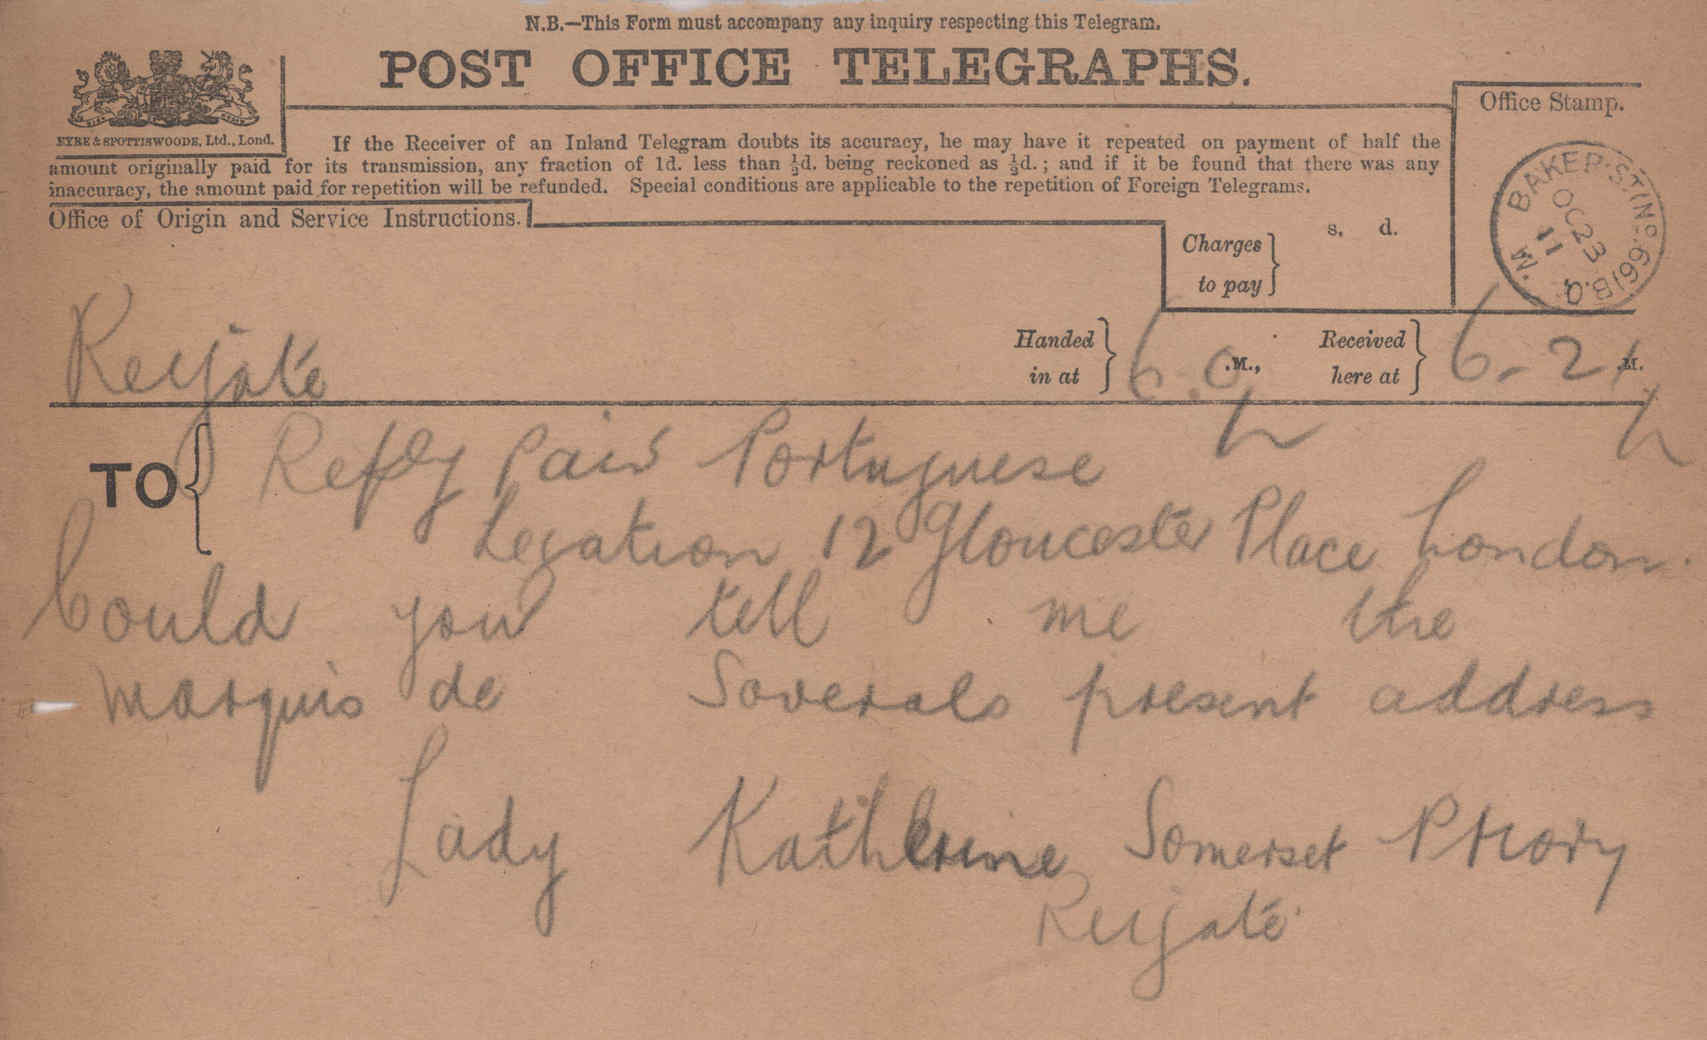 N.B.—This Form must accompany any inquiry respecting this Telegram.
POST OFFICE TELEGRAPHS.
EYRE & SPOTTISWOODE, Ltd., Lond.
If the Receiver of an Inland Telegram doubts its accuracy, he may have it repeated on payment of half the
amount originally paid for its transmission, any fraction of 1d. less than ½d. being reckoned as ½d.; and if it be found that there was any
inaccuracy, the amount paid for repetition will be refunded. Special conditions are applicable to the repetition of Foreign Telegrams.
Office Stamp.
BAKER·ST(No.66)B.O.
OC23
11
W.
Office of Origin and Service Instructions.
Charges
to pay
s. d.
Reigate
Handed
in at
6.0
.M.,
Received
here at
6-21
.M.
TO
Reply Paid Portuguese
Legation 12 Gloucester Place London.
Could you tell me the
Marquis de Soverals present address
Lady Katherine Somerset Priory
Reigate